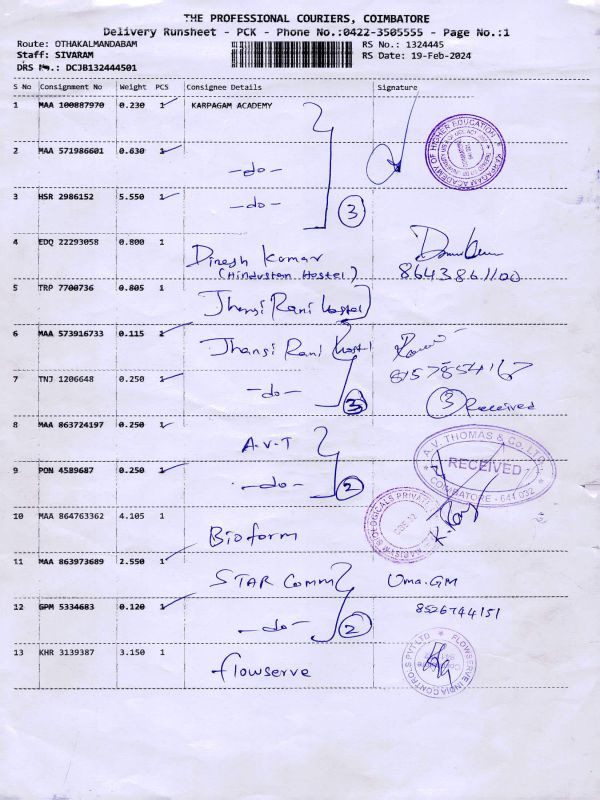 THE PROFESSIONAL COURIERS, COIMBATORE
Delivery Runsheet - PCK - Phone No.:0422-3505555 - Page No.:1
Route: OTHAKALMANDABAM RS No.: 1324445
Staff: SIVARAM RS Date: 19-Feb-2024
DRS No.: DCJB132444501
S No Consignment No Weight PCS Consignee Details Signature
1 MAA 100887970 0.230 1 KARPAGAM ACADEMY
2 MAA 571986601 0.630 1 -do-
3 HSR 2986152 5.550 1 -do- 3
4 EDQ 22293058 0.800 1 Dinesh Kumar
(Hindustan Hostel) 8643861100
5 TRP 7700736 0.805 1 Jhansi Rani hostel
6 MAA 573916733 0.115 1 Jhansi Rani hostel
7 TNJ 1206648 0.250 1 -do- 3 8157854167
3 Received
8 MAA 863724197 0.250 1 A.V.T
A.V. THOMAS & Co. LTD.,
RECEIVED
COIMBATORE - 641 032
9 PON 4589687 0.250 1 -do- 2
10 MAA 864763362 4.105 1 Bioform
11 MAA 863973689 2.550 1 STAR Comm Uma.GM
12 GPM 5334683 0.120 1 -do- 2 8526744151
13 KHR 3139387 3.150 1 flowserve
FLOWSERVE INDIA CONTROLS PVT LTD